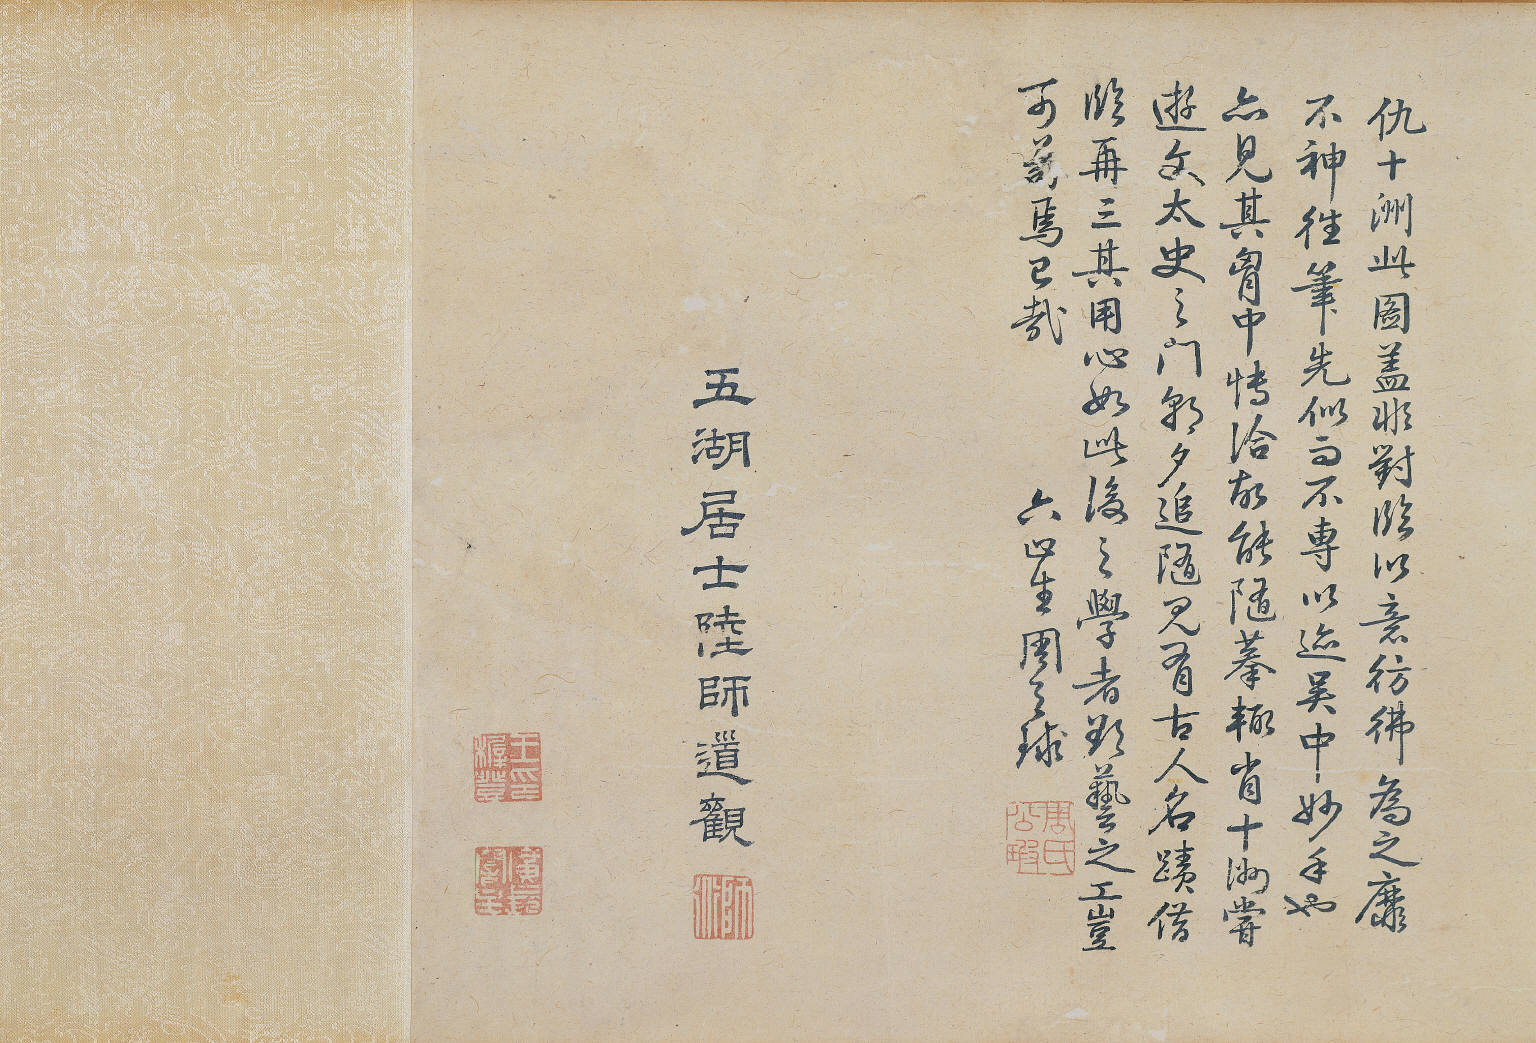 仇十洲此圖蓋非對臨以意彷彿為之靡
不神徃筆先似而不專以迹吳中妙手也
亦見其胷中博洽故能隨摹輒肖十洲嘗
遊文太史之門朝夕追隨見有古人名蹟借
臨再三其用心如此後之學者欲藝之工豈
可苟焉已哉
六止生周之球
周氏公瑕
五湖居士陸師道觀